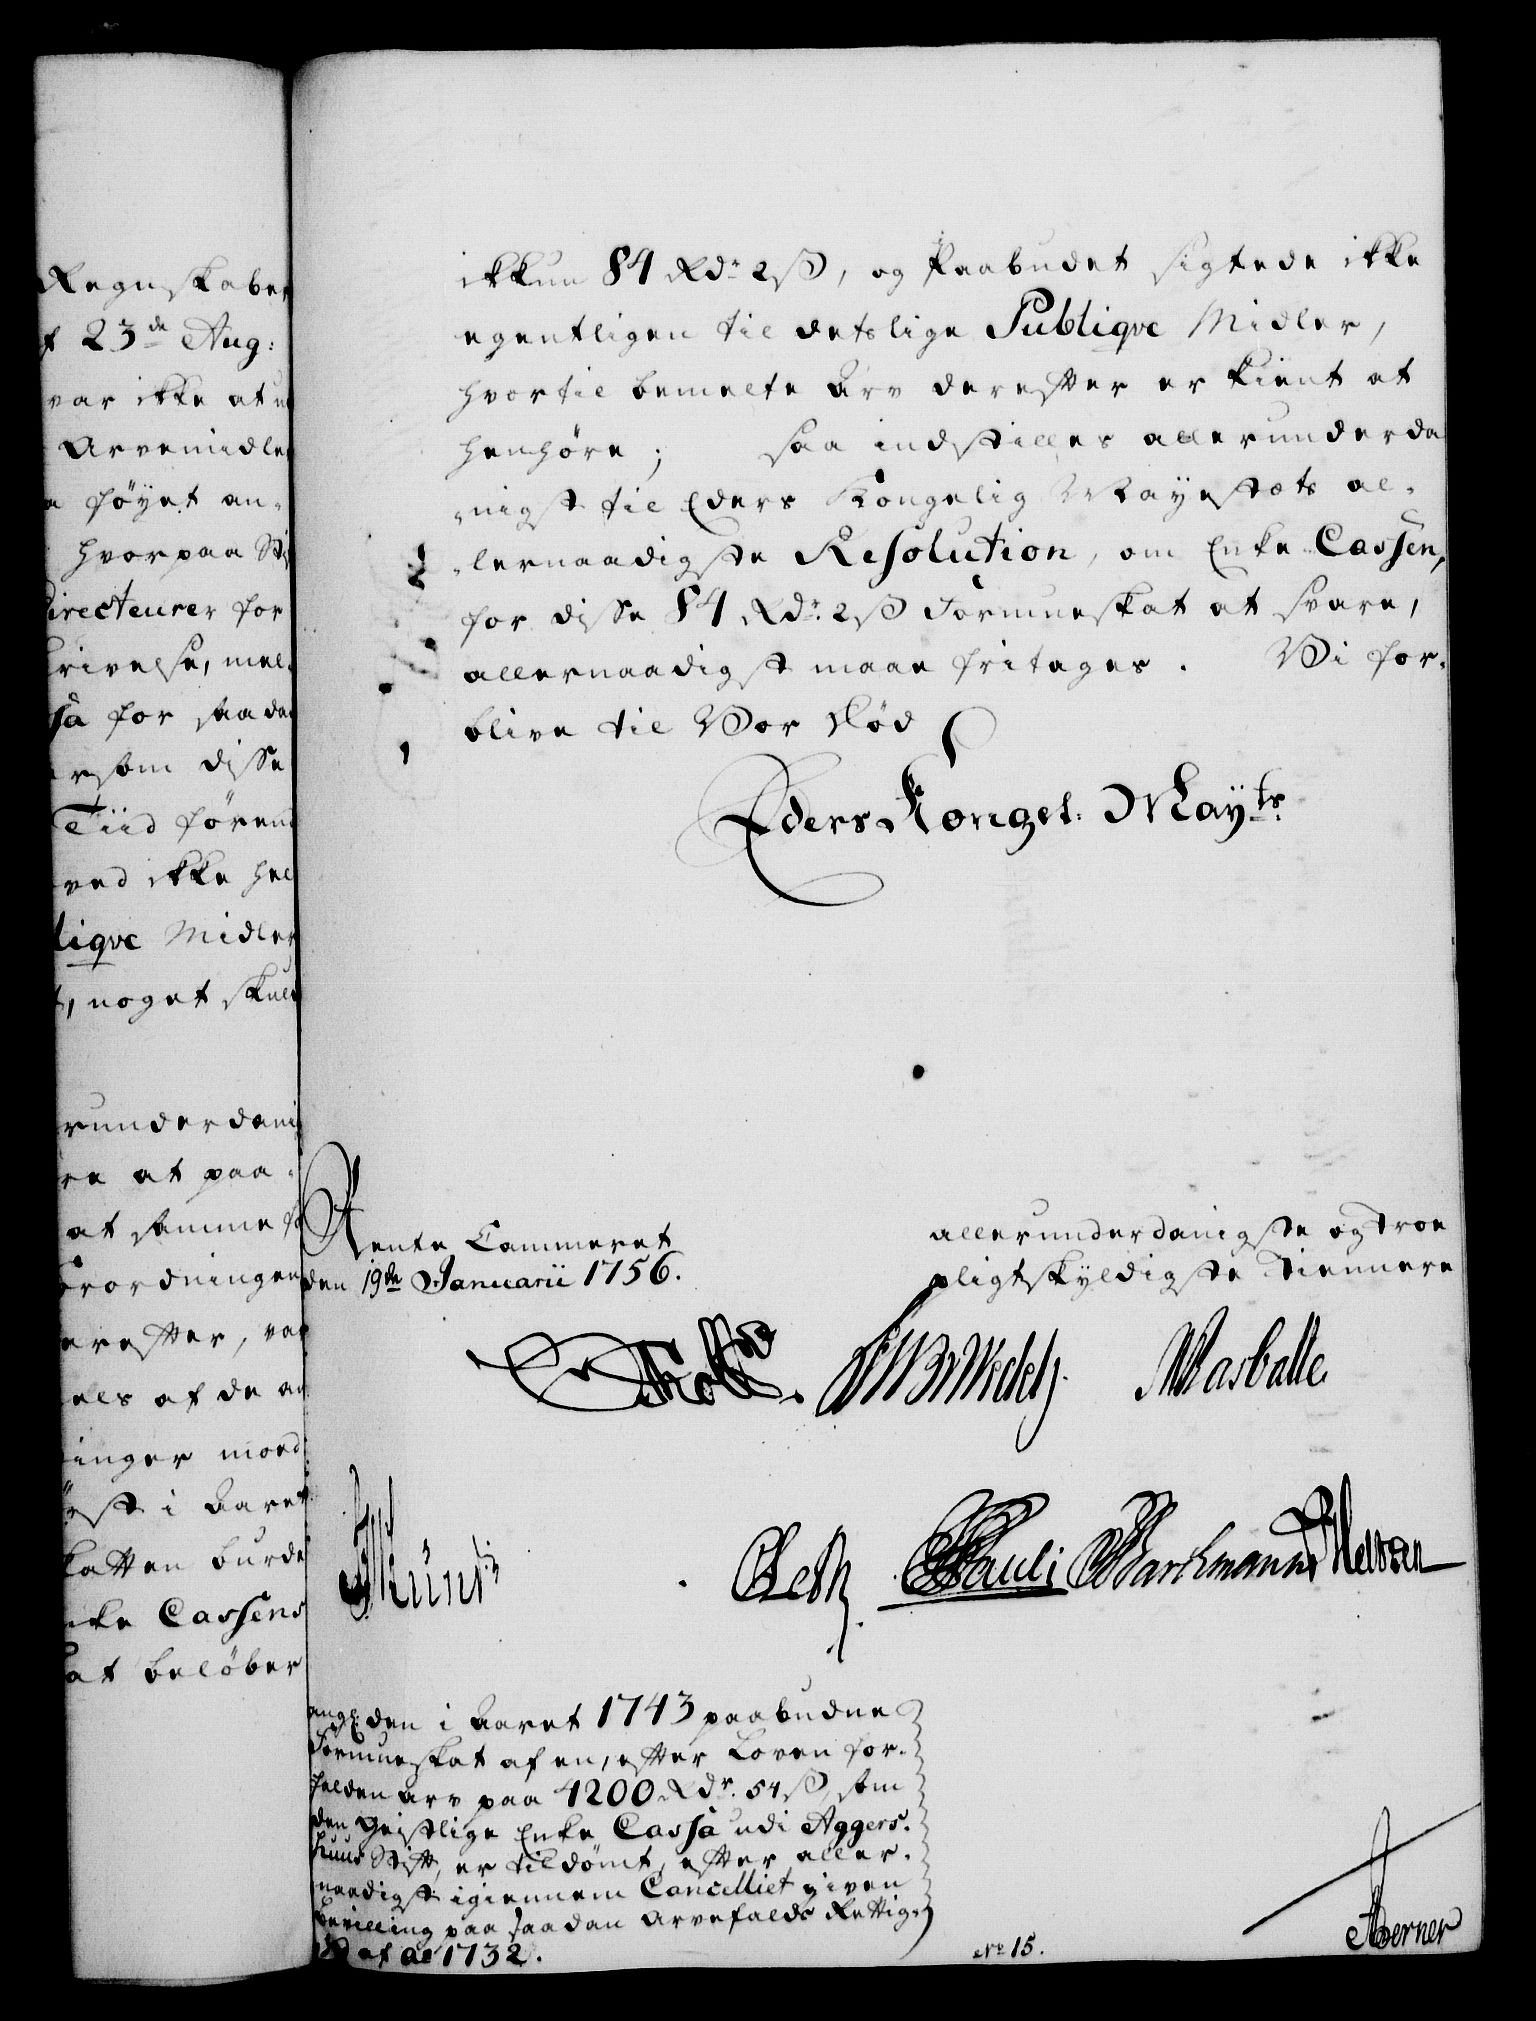 Regnskaber
23de Aug:
var ikke at
Arvemidler
føÿet an-
hvorpaa
Directeurer for
skrivelse, mel-
for saadan
ersom disse
Tiid føren
ved ikke hel
lique Midler
, noget skule
runderdani
re at paa-
at samme
Forordningen
erefter, var
els af de an
inger med
est i Aaret
katten burde
nke Cassens
at beløber
ikkun 84 Rdr 2ß, og Paabudet sigtede ikke
egentligen til detslige Publiqve Midler,
hvortil bemelte Arv derefter er kient at
henhøre; saa indstilles allerunderda
-nigst til Eders Kongelig Mayestæts al-
-lernaadigste Resolution, om Enke-Cassen,
for disse 84 Rdr. 2ß Formueskat at svare,
allernaadigst maae fritages. Vi for-
blive til Vor Død
Eders Kongel. Mayts.
Rente Cammeret
den 19de Januarii 1756.
allerunderdanigste og troe
pligtskyldigste Tiennere
Holst. Wedel. Masballe
Pauli Barchmann
angl: den i Aaret 1743 paabudne
Formueskat af en, efter Loven for-
falden Arv paa 4200 Rdr. 54ß, som
den geistlige Enke Cassa udi Aggers-
huus Stift, er tildømt, efter aller-
naadigst igiennem Cancelliet given
Bevilling paa saadan Arvefalds Rettig-
hed af Ao 1732.
No 15.
Aberner